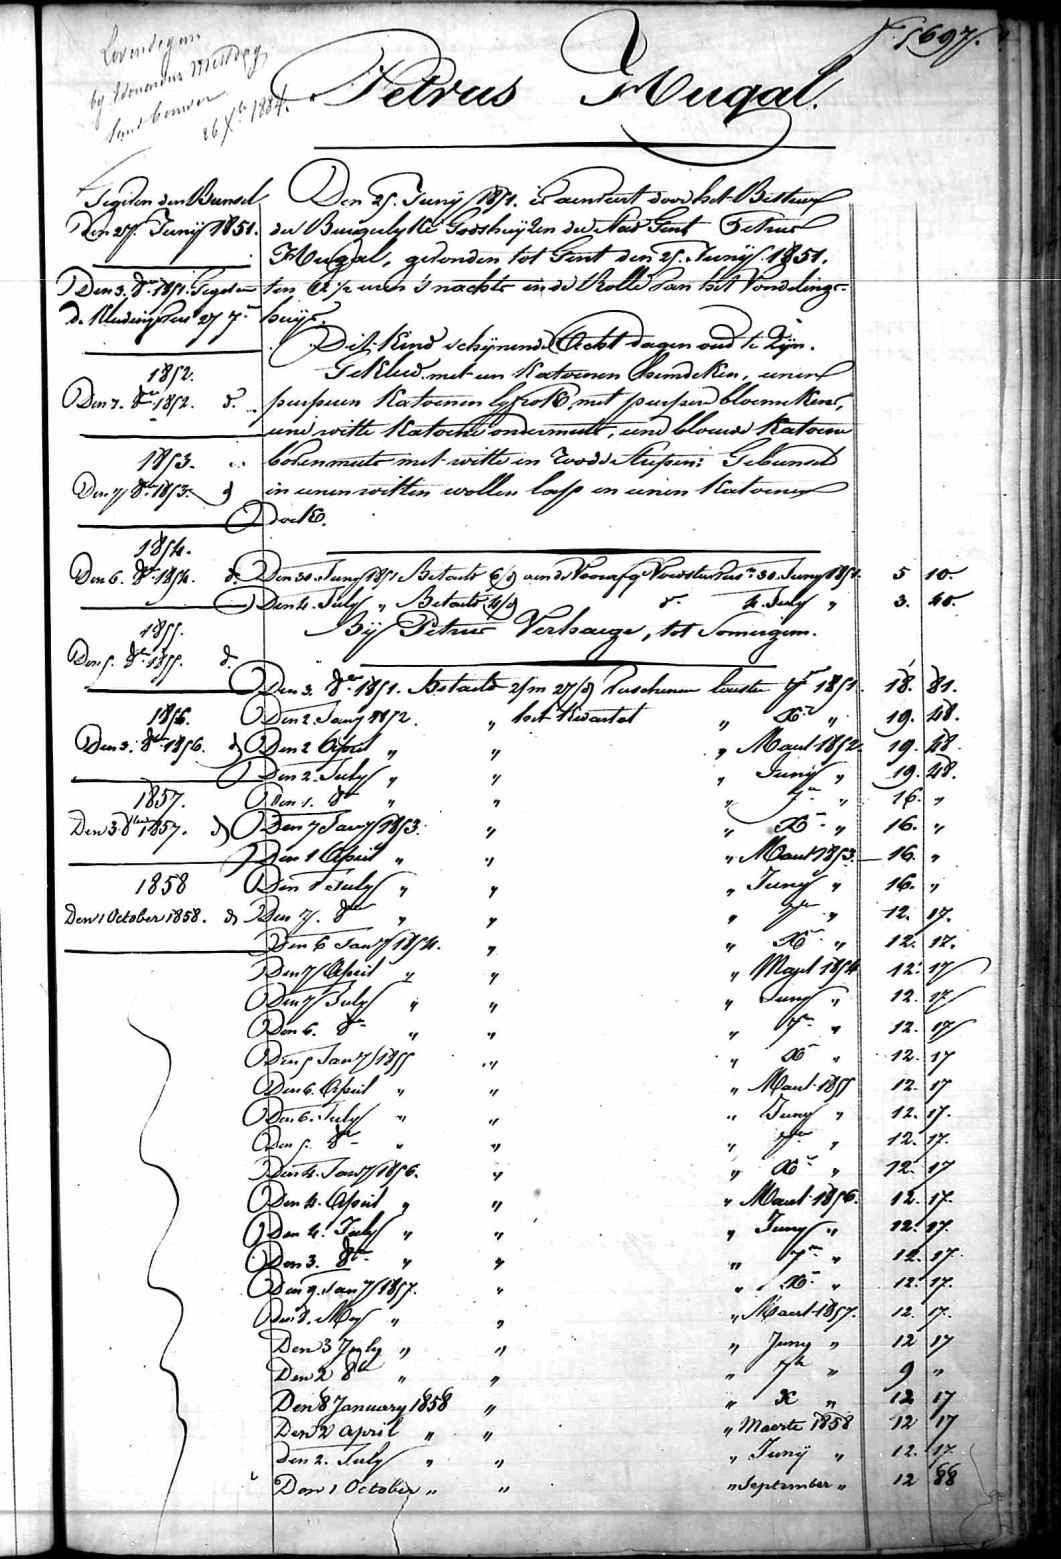 F° 1697.
Lovendegem
by
landbouwer
26 Xbre 1884.
Petrus Hugal.
Den 25. Junij 1851. is aenveirt door het Bestuer
der Burgerlyke Godshuyzen der Stad Gent Petrus
Hugal, gevonden tot Gent den 25. Junij 1851.
ten uren 's nachts in de Rolle van het Vondelings-
huys.
Dit Kind schijnende Acht dagen oud te zijn.
Gekleed met een Katoenen hemdeken, eenen
purperen Katoenen lyfrok met purpere bloemekens,
eene witte Katoene ondermuts, eene blauwe Katoene
bovenmuts met witte en roode strepen: Gebunseld
in eenen witten wollen lap en eenen Katoenen
Doek.
Den 27. Junij 1851.
Den 3. 8bre 1851.
1852.
Den 7. 8bre 1852. d°
1853.
Den 7 8bre 1853. d°
1854.
Den 6. 8bre 1854. d°
1855.
Den 5. 8bre 1855. d°
1856.
Den 3. 8bre 1856. d°
1857.
Den 3 8ber 1857. d°
1858
Den 1 October 1858. d°
Den 30. Juny 1851 Betaeld 6/d aen de Voorafg Voedster 30. Juny 1851. 5 10.
Den 4. July " Betaeld 4/d d° 4. July " 3. 40.
Bij Petrus Verhaege, tot Somergem.
Den 3. 8bre 1851. Betaeld 2/m 27/d 7bre 1851. 18. 81.
Den 2. Janry 1852. " het Kwartael " Xbre " 19. 48.
Den 2 April " " " Maert 1852. 19. 48.
Den 2. July " " " Juny " 19. 48.
Den 1. 8bre " " " 7bre " 16. "
Den 7 Janry 1853. " " Xbre " 16. "
Den 1 April " " " Maert 1853. 16. "
Den 1 July " " " Juny " 16. "
Den 7. 8bre " " " 7bre " 12. 17.
Den 6 Janry 1854. " " Xbre " 12. 17.
Den 7 April " " " Maert 1854 12. 17
Den 7 July " " " Juny " 12. 17
Den 6. 8bre " " " 7bre " 12. 17
Den 5 Janry 1855 " " Xbre " 12. 17
Den 6. April " " " Maert 1855 12. 17
Den 6. July " " " Juny " 12. 17.
Den 5. 8bre " " " 7bre " 12. 17.
Den 4. Janry 1856. " " Xbre " 12. 17
Den 4. April " " " Maert 1856. 12. 17.
Den 4. July " " " Juny " 12. 17.
Den 3. 8bre " " " 7bre " 12. 17.
Den 9. Janry 1857. " " Xbre " 12. 17.
Den 8. Mey " " " Maert 1857. 12. 17.
Den 3 July " " " Juny " 12 17
Den 2 8bre " " " 7bre " 9 "
Den 8 January 1858 " " X " 12 17
Den 2 April " " " Maerte 1858 12 17
Den 2. July " " " Junij " 12. 17.
Den 1 October " " " September " 12 88